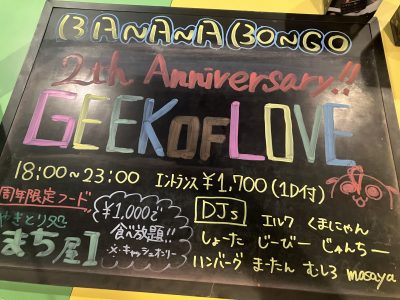 BANANA BONGO
2th Anniversary!!
GEEK OF LOVE
18:00~23:00 エントランス ¥1,700(1D付)
周年限定フード
やきとり処
まち屋
¥1,000で
食べ放題!!
※キャッシュオンリー
DJs エルク くまにゃん
しょーた じーびー じゃんちー
ハンバーグ まーたん むしろ masaya